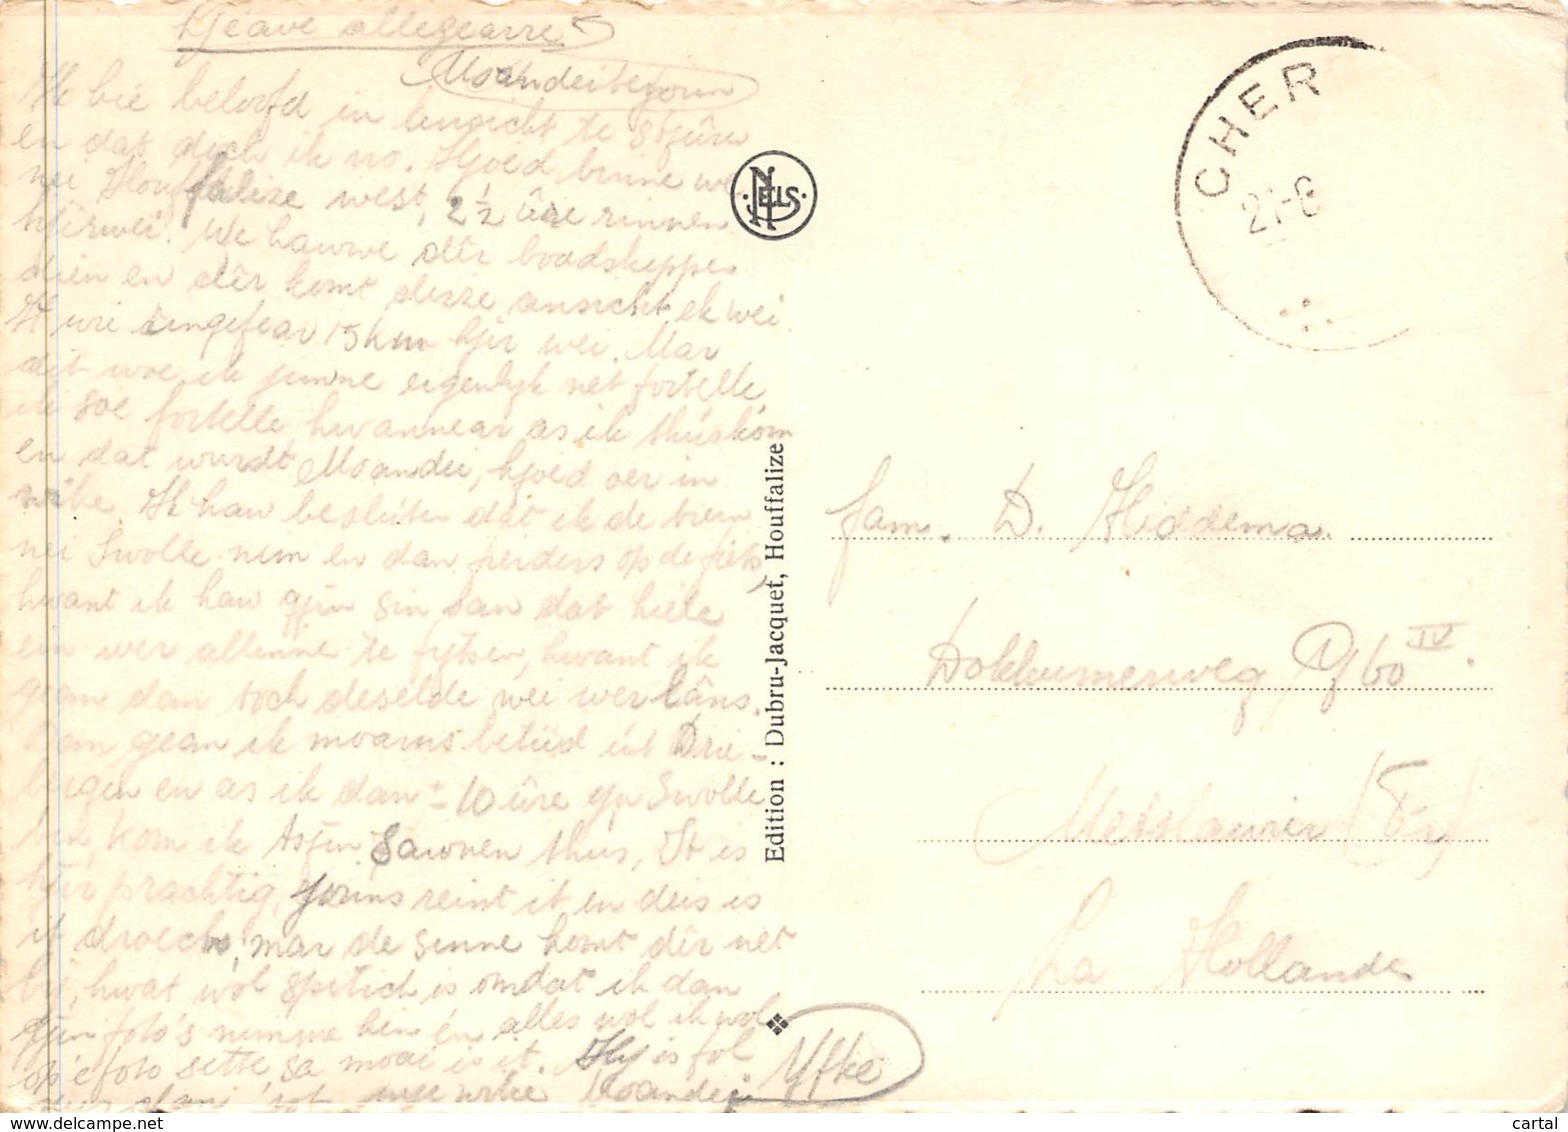 Ljeave allegearre
Moandeitejoun
Ik bin beloofd in 'e stjûre
en dat doch ik no. Hjoed binne we
nei Houffalize west, 2½ ûre rinnen
hjirwei. We hawwe dêr boadskippen
dien en dêr komt disse ansicht ek wei
It wie ûngefear 15 km hjir wei. Mar
dit woe ik jimme eigenlyk net fortelle,
ik sol fortelle hwannear as ik thúskom
en dat wurdt Moandei, hjoed oer in
wike. Ik haw besluten dat ik de trein
nei Swolle nim en dan fierders op de fiets,
hwant ik haw gjin sin oan dat hiele
ein wer allinne te fytsen, hwant ik
gean dan toch deselde wei wer lâns.
Dan gean ik moarns betiid út Drie-
bergen en as ik dan ± 10 ûre yn Swolle
bin, kom ik tsjin sawnen thús. It is
hjir prachtig, jouns reint it en deis is
it droech, mar de sinne komt dêr net
by, hwat wol spitich is omdat ik dan
gjin foto's nimme kin én alles wol ik wol
op 'e foto sette, sa moai is it. Hy is fol
Moandei
Yfke
NELS
Edition : Dubru-Jacquet, Houffalize
CHER
21-8
Fam. D. Hiddema
Dokkumerweg 60 IV.
Metslawier (Fr)
La Hollande
delcampe.net
cartal